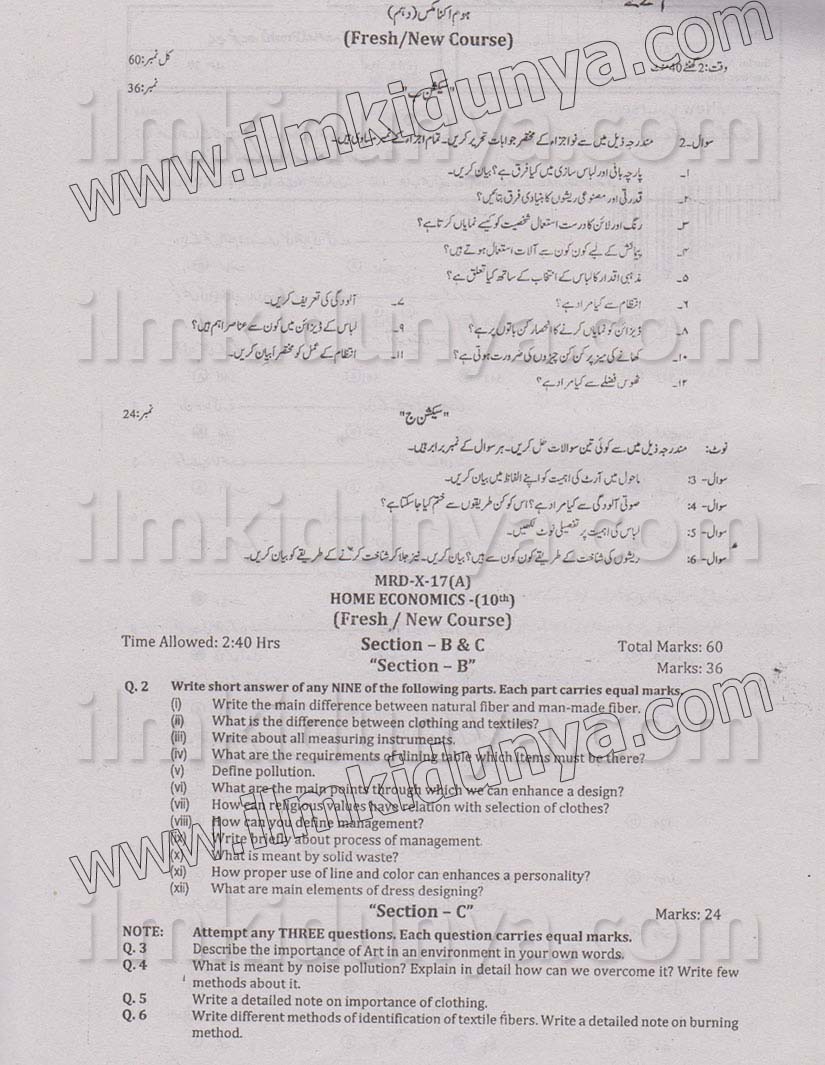 ہوم اکنامکس (دہم)
(Fresh/New Course)
وقت: 2 گھنٹے 40 منٹ کل نمبر: 60
"سیکشن ب" نمبر: 36
سوال۔2 مندرجہ ذیل میں سے نو اجزاء کے مختصر جوابات تحریر کریں۔ تمام اجزاء کے نمبر مساوی ہیں۔
۱۔ پارچہ بافی اور لباس سازی میں کیا فرق ہے؟ بیان کریں۔
۲۔ قدرتی اور مصنوعی ریشوں کا بنیادی فرق بتائیں؟
۳۔ رنگ اور لائن کا درست استعمال شخصیت کو کیسے نمایاں کرتا ہے؟
۴۔ پیمائش کے لیے کون کون سے آلات استعمال ہوتے ہیں؟
۵۔ مذہبی اقدار کا لباس کے انتخاب کے ساتھ کیا تعلق ہے؟
۶۔ انتظام سے کیا مراد ہے؟ ۷۔ آلودگی کی تعریف کریں۔
۸۔ ڈیزائن کو نمایاں کرنے کا انحصار کن باتوں پر ہے؟ ۹۔ لباس کے ڈیزائن میں کون سے عناصر اہم ہیں؟
۱۰۔ کھانے کی میز پر کن کن چیزوں کی ضرورت ہوتی ہے؟ ۱۱۔ انتظام کے عمل کو مختصراً بیان کریں۔
۱۲۔ ٹھوس فضلے سے کیا مراد ہے؟
"سیکشن ج" نمبر: 24
نوٹ: مندرجہ ذیل میں سے کوئی تین سوالات حل کریں۔ ہر سوال کے نمبر برابر ہیں۔
سوال۔ 3: ماحول میں آرٹ کی اہمیت کو اپنے الفاظ میں بیان کریں۔
سوال۔ 4: صوتی آلودگی سے کیا مراد ہے؟ اس کو کن طریقوں سے ختم کیا جا سکتا ہے؟
سوال۔ 5: لباس کی اہمیت پر تفصیلی نوٹ لکھیں۔
سوال۔ 6: ریشوں کی شناخت کے طریقے کون کون سے ہیں؟ بیان کریں۔ نیز جلا کر شناخت کرنے کے طریقے کو بیان کریں۔
MRD-X-17(A)
HOME ECONOMICS -(10th)
(Fresh / New Course)
Time Allowed: 2:40 Hrs Section – B & C Total Marks: 60
"Section – B" Marks: 36
Q. 2 Write short answer of any NINE of the following parts. Each part carries equal marks.
(i) Write the main difference between natural fiber and man-made fiber.
(ii) What is the difference between clothing and textiles?
(iii) Write about all measuring instruments.
(iv) What are the requirements of dining table which items must be there?
(v) Define pollution.
(vi) What are the main points through which we can enhance a design?
(vii) How can religious values have relation with selection of clothes?
(viii) How can you define management?
(ix) Write briefly about process of management.
(x) What is meant by solid waste?
(xi) How proper use of line and color can enhances a personality?
(xii) What are main elements of dress designing?
"Section – C" Marks: 24
NOTE: Attempt any THREE questions. Each question carries equal marks.
Q. 3 Describe the importance of Art in an environment in your own words.
Q. 4 What is meant by noise pollution? Explain in detail how can we overcome it? Write few
methods about it.
Q. 5 Write a detailed note on importance of clothing.
Q. 6 Write different methods of identification of textile fibers. Write a detailed note on burning
method.
www.ilmkidunya.com
www.ilmkidunya.com
ilmkidunya.com
ilmkidunya.com
ilmkidunya.com
ilmkidunya.com
ilmkidunya.com